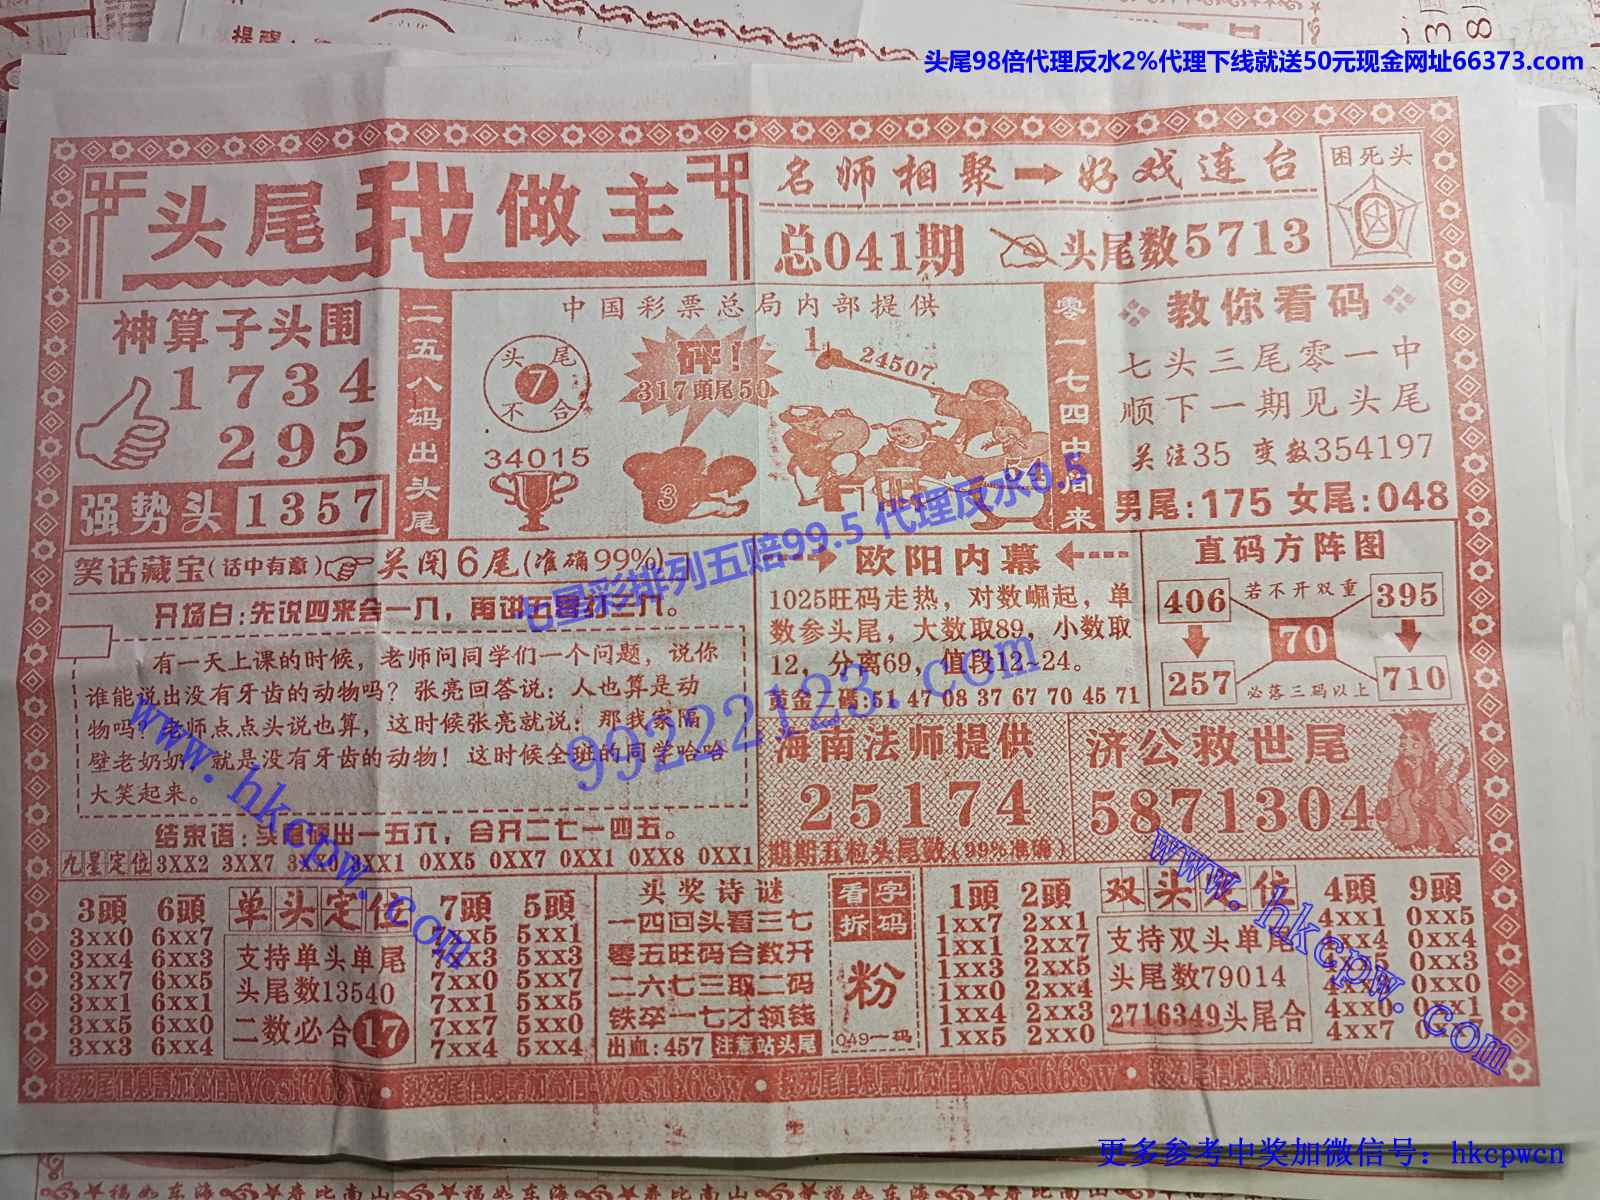 提醒:
头尾98倍代理反水2%代理下线就送50元现金网址66373.com
头尾我做主
名师相聚→好戏连台
困死头
0
总041期
头尾数5713
神算子头围
1734
295
强势头 1357
二五八码出头尾
中国彩票总局内部提供
头尾
7
不合
砰!
317頭尾50
34015
3
1
24507
零一七四中间来
教你看码
七头三尾零一中
顺下一期见头尾
关注35 变数354197
男尾:175 女尾:048
笑话藏宝(话中有意) 关闭6尾(准确99%)
七星彩排列五赔99.5 代理反水0.5
有一天上课的时候，老师问同学们一个问题，说你
谁能说出没有牙齿的动物吗？张亮回答说：人也算是动
物吗？老师点点头说也算，这时候张亮就说：那我家隔
壁老奶奶，就是没有牙齿的动物！这时候全班的同学哈哈
大笑起来。
结束语:头尾 出一五六，合开二七一四五。
九星定位 3XX2 3XX7 3XX1 0XX5 0XX7 0XX1 0XX8 0XX1
欧阳内幕
1025旺码走热，对数崛起，单
数参头尾，大数取89，小数取
12，分离69，值段12~24。
黄金二碼:51 47 08 37 67 70 45 71
99222123.com
直码方阵图
406 若不开双重 395
70
257 必落三码以上 710
海南法师提供
25174
期期五粒头尾数(99%准确)
济公救世尾
5871304
www.hkcpw.com
3頭 6頭
3xx0 6xx7
3xx4 6xx3
3xx7 6xx5
3xx1 6xx1
3xx5 6xx0
3xx3 6xx4
单头定位
支持单头单尾
头尾数13540
二数必合17
7頭 5頭
xx5 5xx1
xx3 5xx3
7xx0 5xx7
7xx1 5xx5
7xx7 5xx0
7xx4 5xx4
买奖诗谜
一四回头看三七
零五旺码合数开
二六七三取二码
铁卒一七才领钱
出血:457 注意站头尾
看字拆码
粉
049一码
1頭 2頭
1xx7 2xx1
1xx1 2xx7
1xx3 2xx5
1xx0 2xx4
1xx4 2xx3
1xx5 2xx0
双头定位
支持双头单尾
头尾数79014
2716349头尾合
4頭 9頭
4xx1 0xx5
xx4 0xx4
0xx3
0xx0
4xx0 xx1
4xx7
www.hkcpw.com
Wosi668w
更多参考中奖加微信号：hkcpwcn